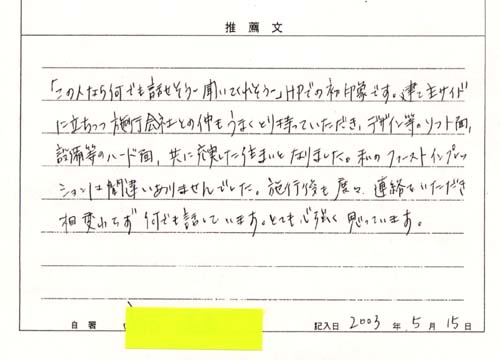 推薦文
「この人なら何でも話せそう～聞いてくれそう～」HPでの初印象です。建て主サイド
に立ちつつ施行会社との仲もうまくとり持っていただき、デザイン等のソフト面、
設備等のハード面、共に充実した住まいとなりました。私のファーストインプレッ
ションは間違いありませんでした。施行後も度々、連絡をいただき
相変わらず何でも話しています。とても心強く思っています。
自署
記入日 2003 年 5 月 15 日